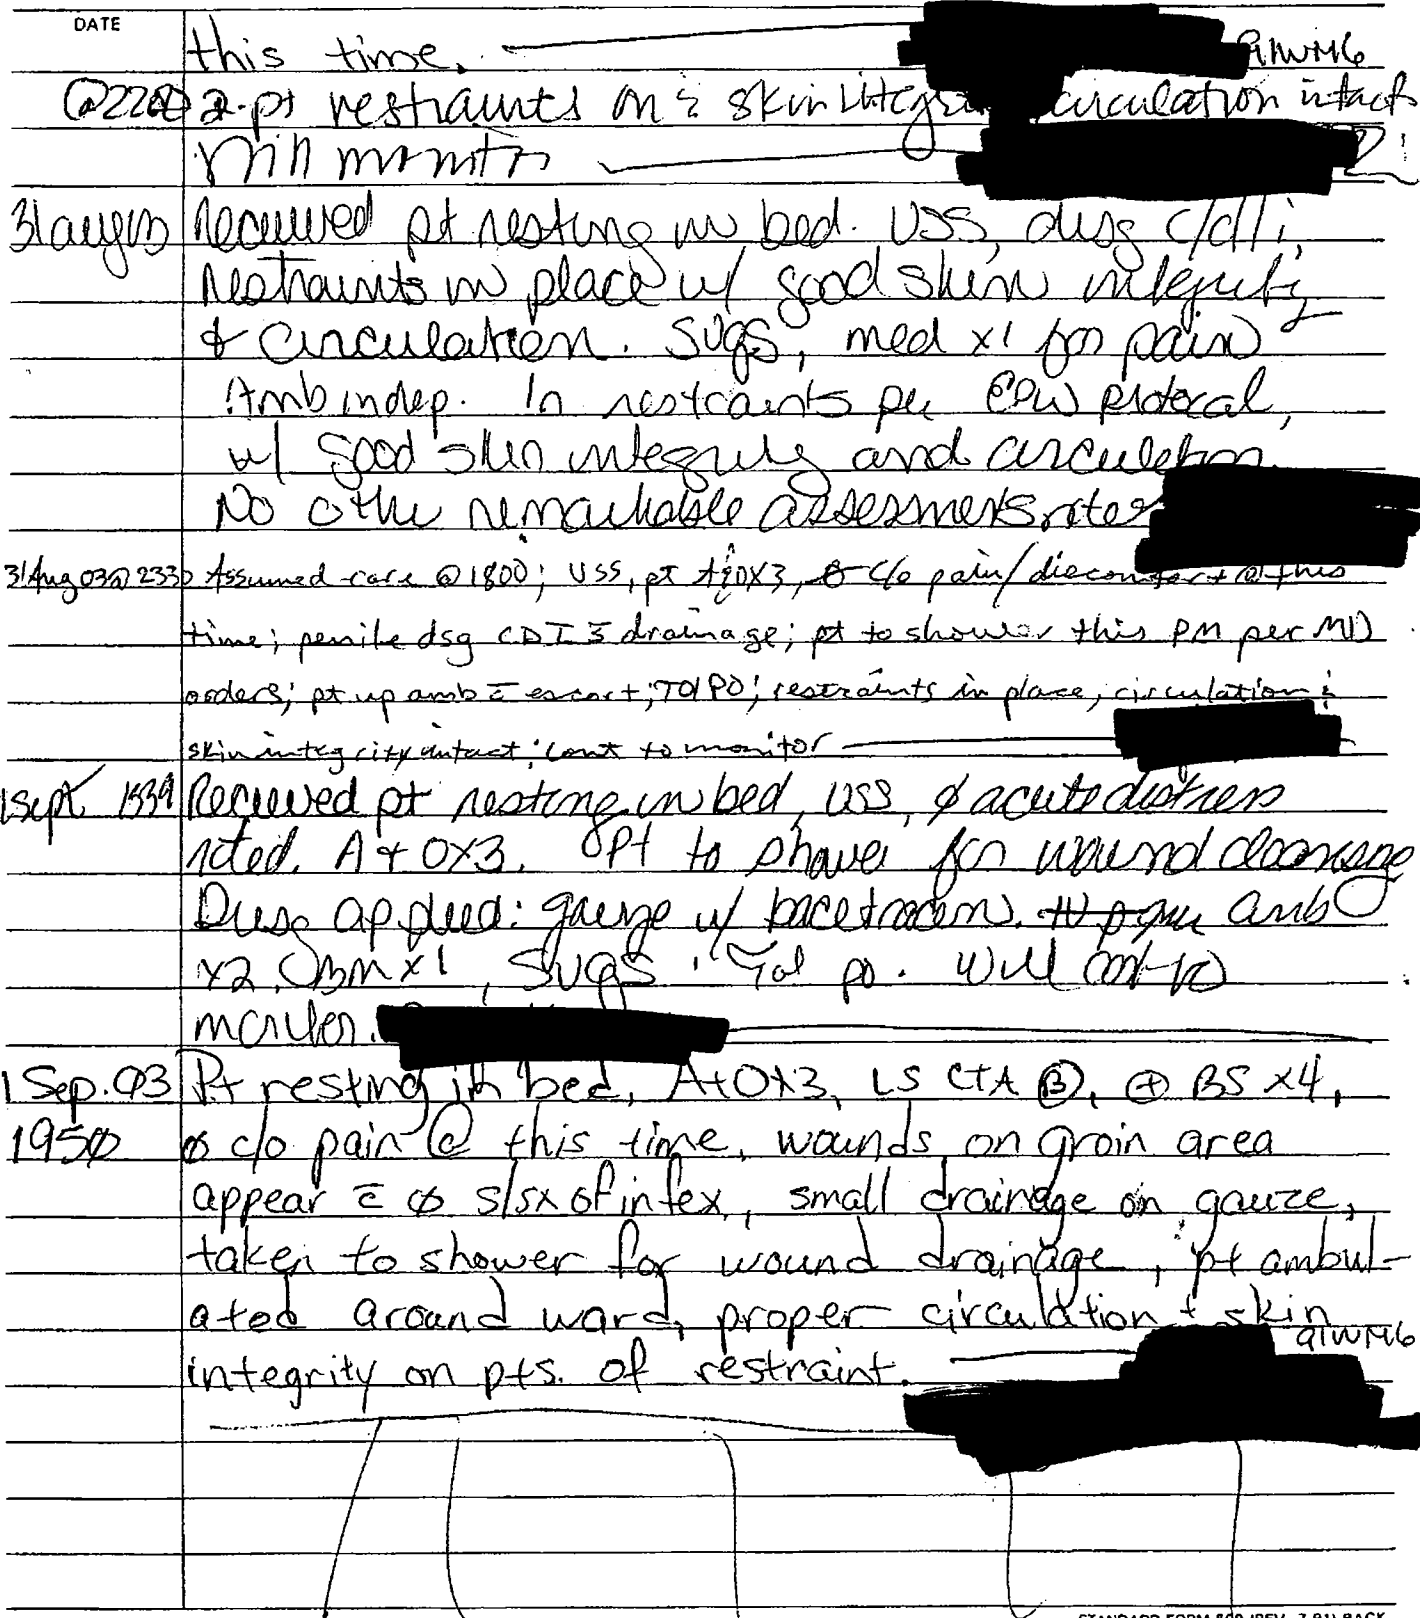 DATE
this time. 91WM6
@2200 2-pt restraints on c̄ skin integri circulation intact
Will monitor
31 aug 03 Received pt resting in bed. VSS, dsg c/d/i,
restraints in place w/ good skin integrity
& circulation. SVGS, med x1 for pain
Amb indep. In restraints per EPW protocal,
w/ good skin integrity and circulation.
No othe remarkable assessments noted
31 Aug 03 @ 2330 Assumed care @ 1800; VSS, pt A&OX3, ø c/o pain/discomfort @ this
time; penile dsg CDI s̄ drainage; pt to shower this PM per MD
orders; pt up amb c̄ escort; TOl PO; restraints in place, circulation &
skin integrity intact; cont to monitor
1 Sept 1539 Received pt resting in bed, VSS, ø acute distress
noted. A + OX3. Pt to shower for wound cleansing
Dsg applied: gauze w/ bacetracin. amb
x2, BM x1, SVGS. Tol po. Will cont to
moniter.
1 Sep. 03 Pt resting in bed, A+OX3, LS CTA Ⓑ, ⊕ BS x4,
1950 ø c/o pain @ this time, wounds on groin area
appear c̄ ø s/sx of infex, small drainage on gauze,
taken to shower for wound drainage, pt ambul-
ated around ward, proper circulation + skin
integrity on pts. of restraint. 91WM6
STANDARD FORM (REV. 7-91) BACK